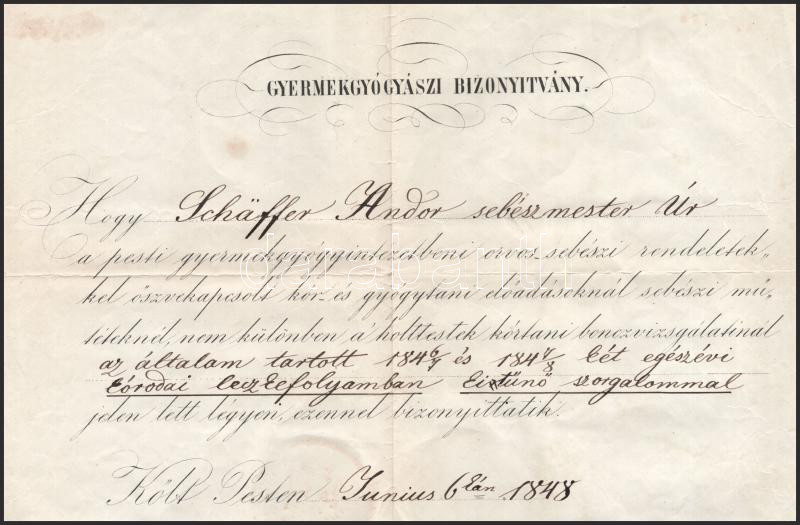 GYERMEKGYÓGYÁSZI BIZONYITVÁNY.
Hogy Schäffer Andor sebészmester Úr
a pesti gyermekgyógyintézetbeni orvos-sebészi rendeletek-
kel öszvekapcsolt kór és gyógytani előadásoknál sebészi mű-
tételeknél, nem különben a' holttestek kórtani bonczvizsgálatinál
az általam tartott 1846/7 és 1847/8 két egészévi
kórodai leczkefolyamban kitűnő szorgalommal
jelen lett légyen, ezennel bizonyittatik.
Költ Pesten Junius 6kán 1848